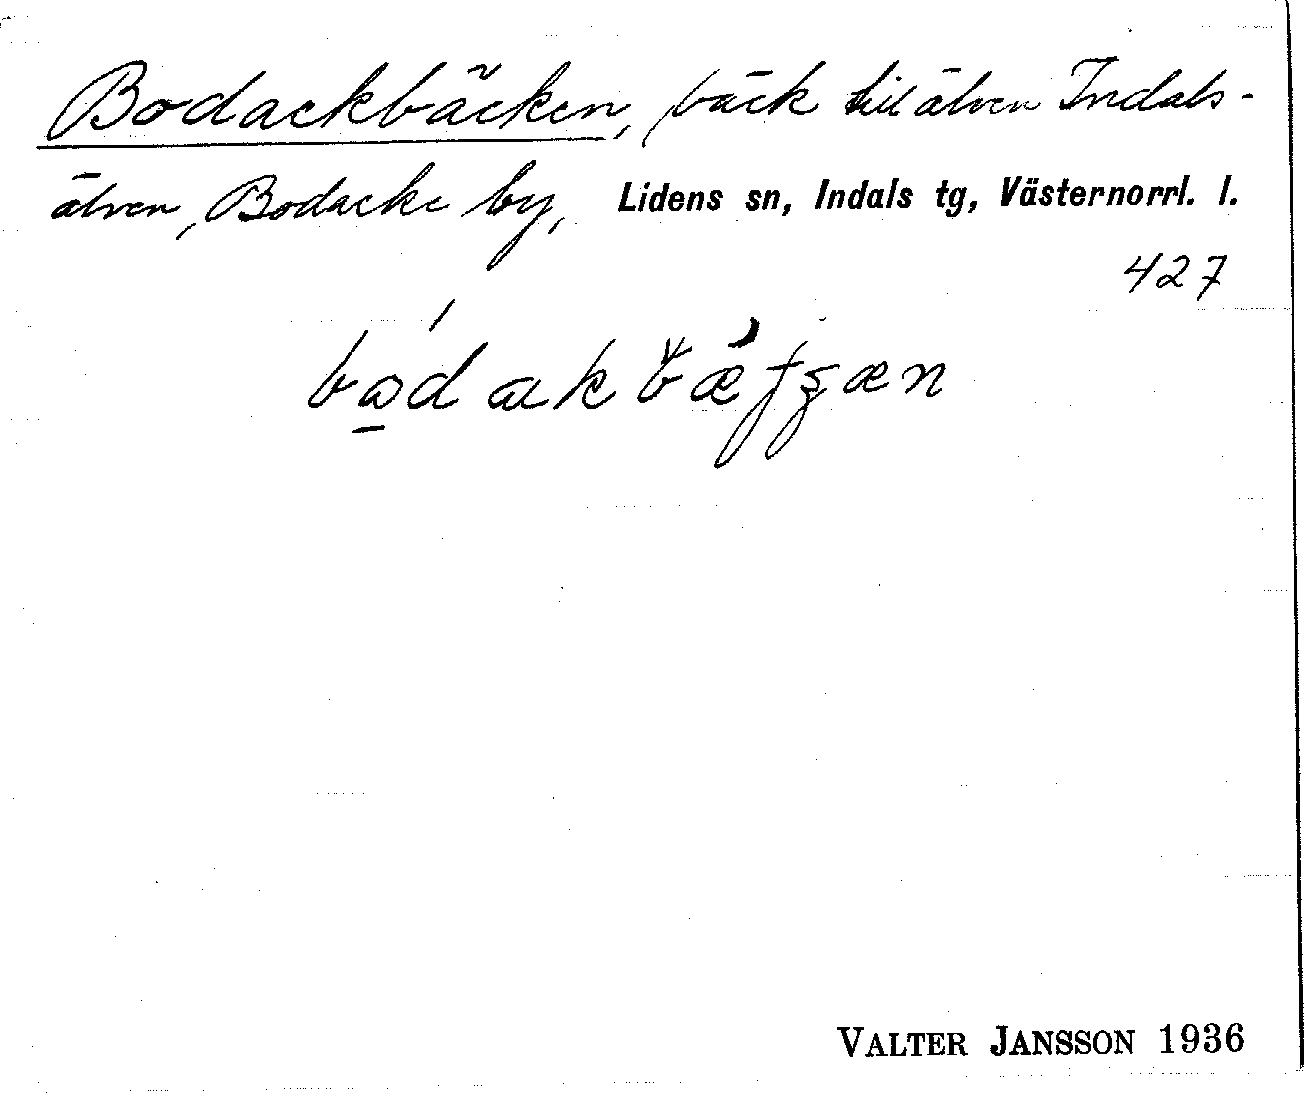 Bodackbäcken, bäck till älven Indals-
älven, Bodacke by, Lidens sn, Indals tg, Västernorrl. l.
427
VALTER JANSSON 1936